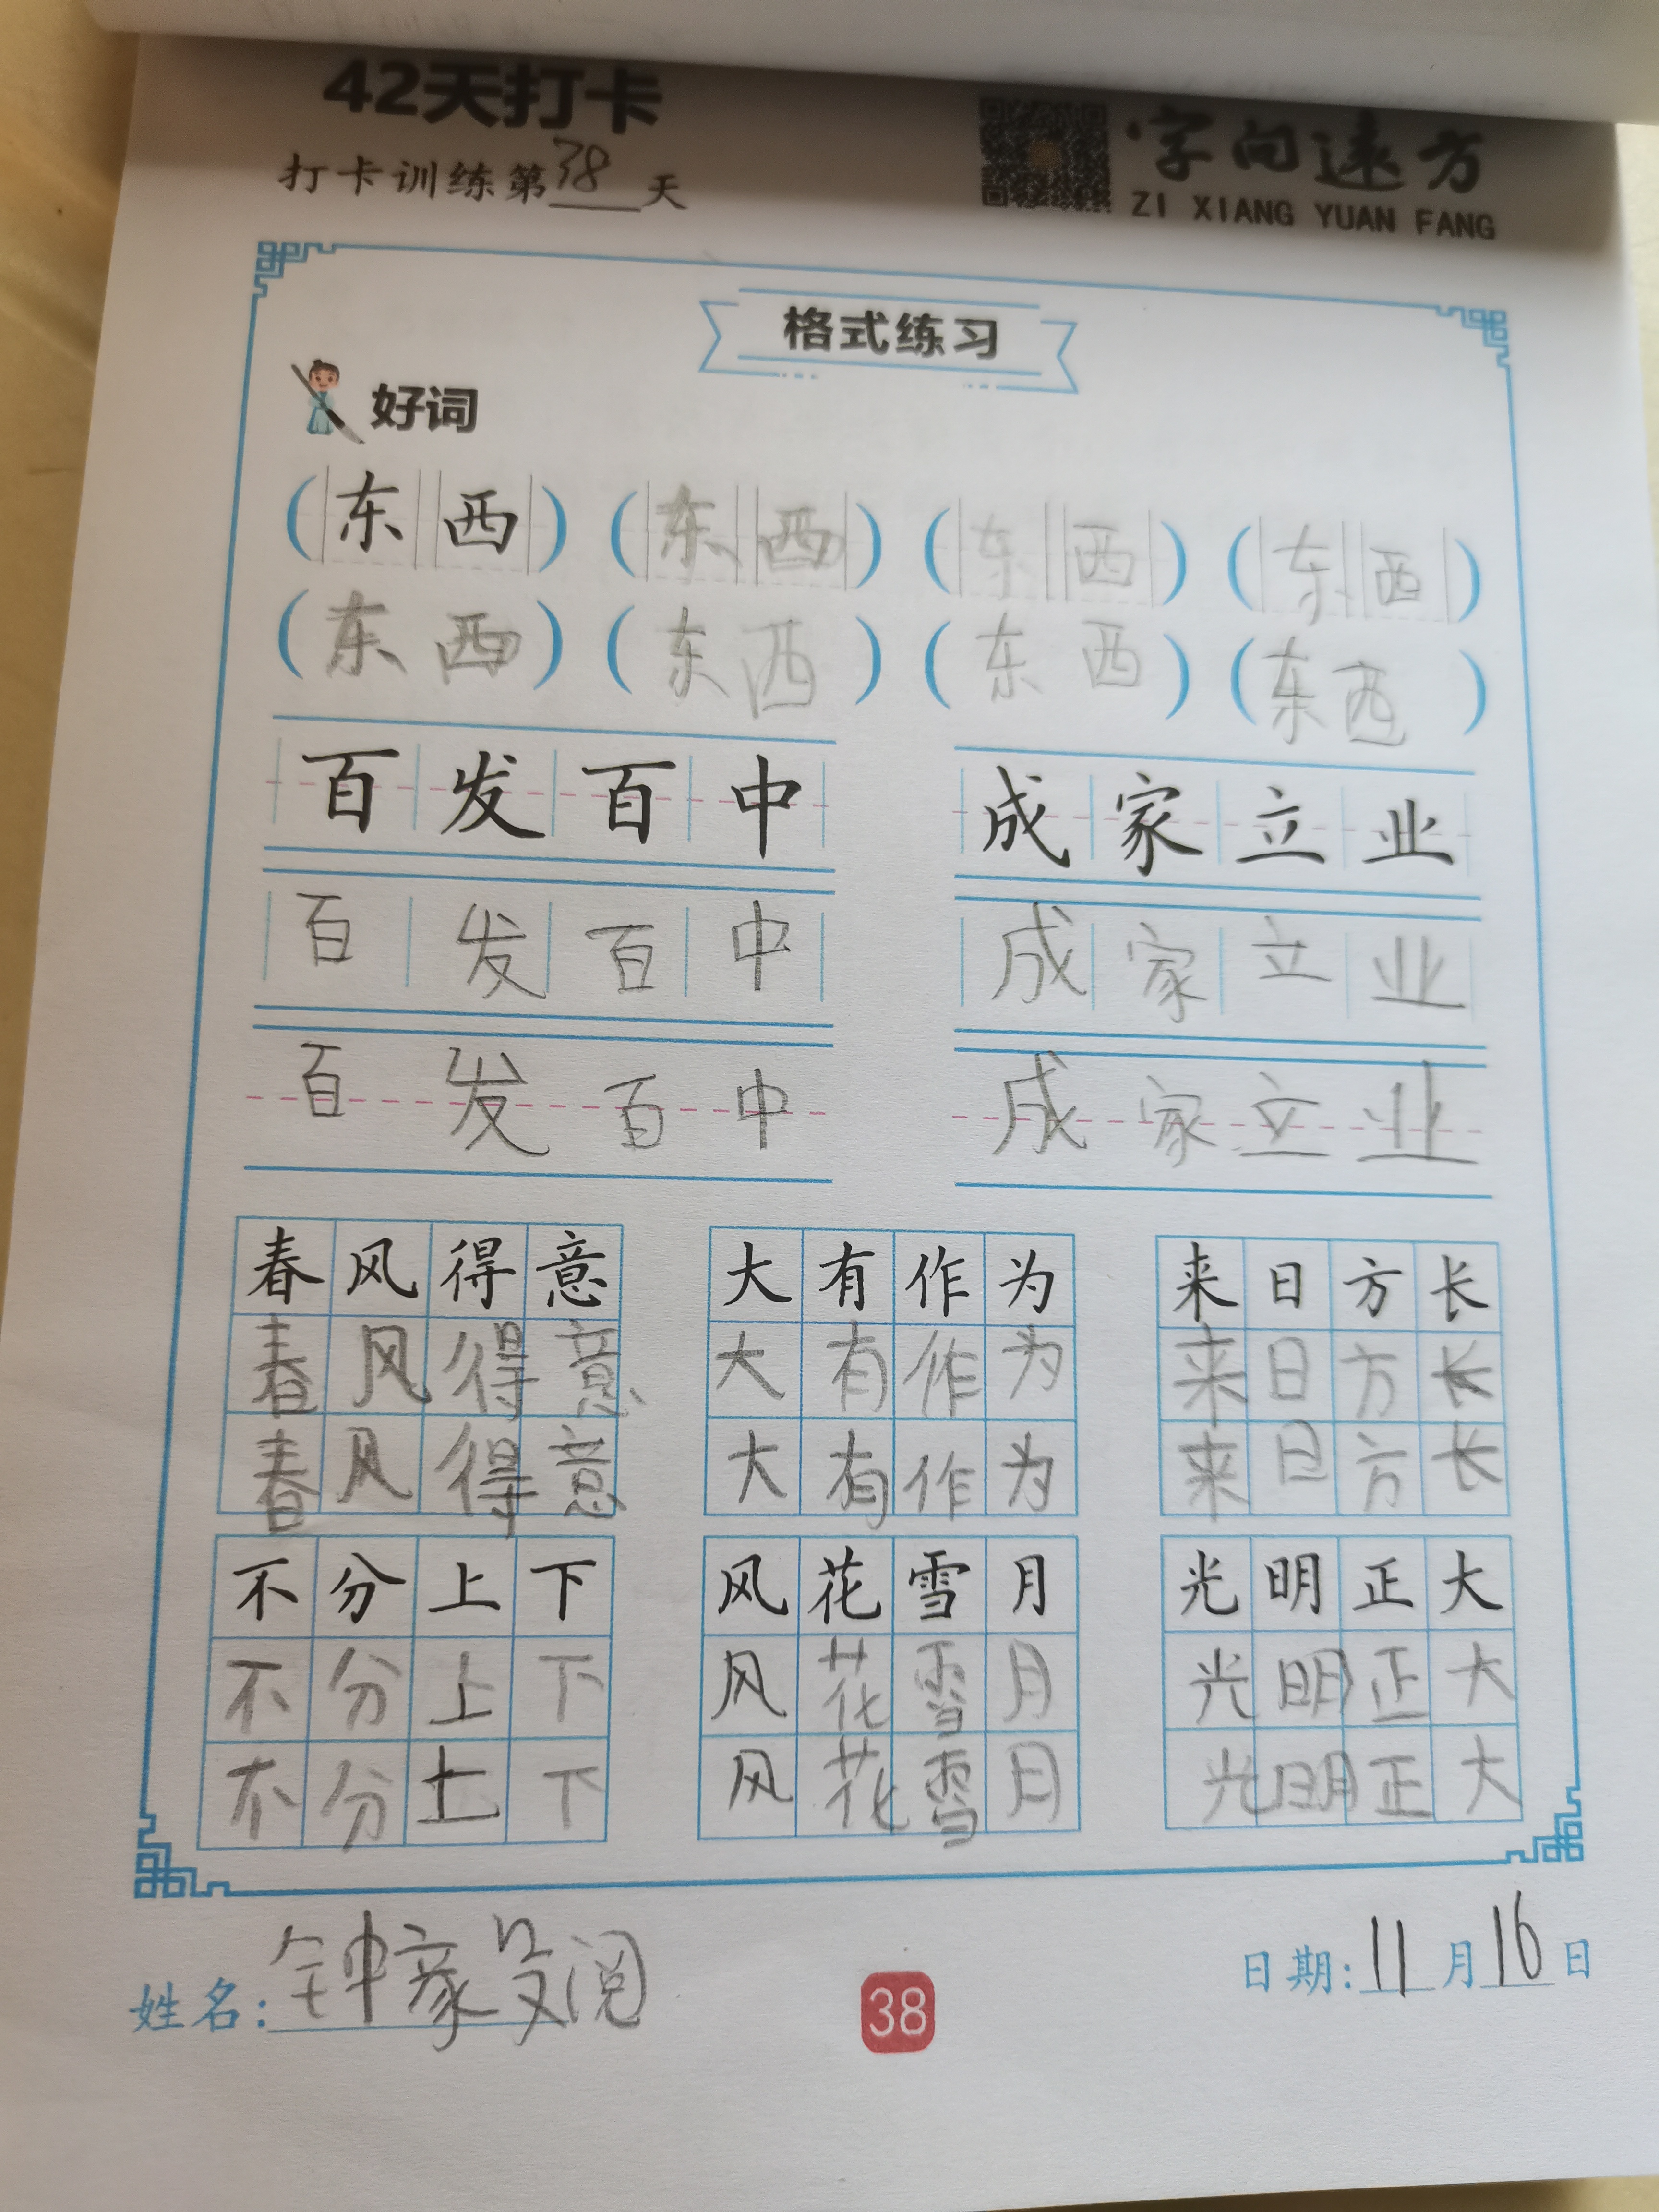 42天打卡
打卡训练第38天
字向远方
ZI XIANG YUAN FANG
格式练习
好词
(东西) (东西) (东西) (东西)
(东西) (东西) (东西) (东西)
百发百中 成家立业
百发百中 成家立业
百发百中 成家立业
春风得意 大有作为 来日方长
春风得意 大有作为 来日方长
春风得意 大有作为 来日方长
不分上下 风花雪月 光明正大
不分上下 风花雪月 光明正大
不分上下 风花雪月 光明正大
姓名:钟家 阅
38
日期:11月16日